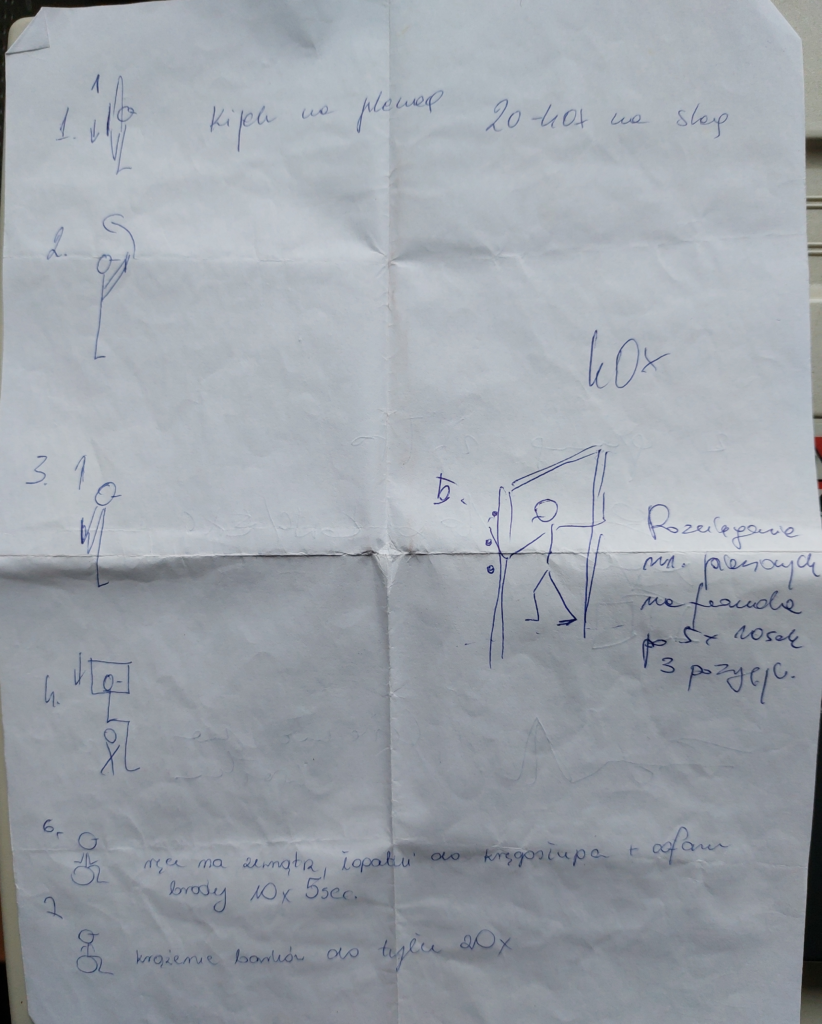 1. Kijek na plecach 20-40x na stronę
2.
40x
3.
5.
Rozciąganie
mm. piersiowych
na framudze
po 5x 10sek
3 pozycje.
4.
6. ręce na zewnątrz, łopatki do kręgosłupa +
brody 10x 5sec.
7 krążenie barków do tyłu 20x